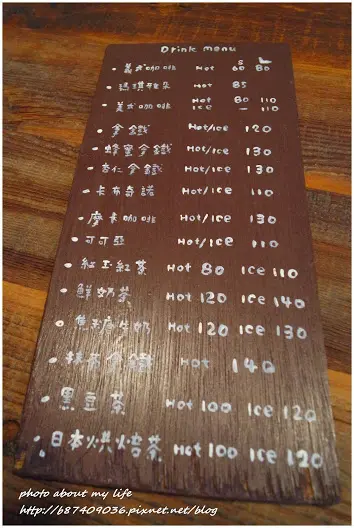 Drink menu
S L
義式咖啡 Hot 60 80
瑪琪雅朵 Hot 85
美式咖啡 Hot 80 110
Ice – 110
拿鐵 Hot/Ice 120
蜂蜜拿鐵 Hot/Ice 130
杏仁拿鐵 Hot/Ice 130
卡布奇諾 Hot/Ice 110
摩卡咖啡 Hot/Ice 130
可可亞 Hot/Ice 110
紅玉紅茶 Hot 80 Ice 110
鮮奶茶 Hot 120 Ice 140
牛奶 Hot 120 Ice 130
抹茶拿鐵 Hot 140
黑豆茶 Hot 100 Ice 120
日本烘焙茶 Hot 100 Ice 120
photo about my life
http://b87409036.pixnet.net/blog